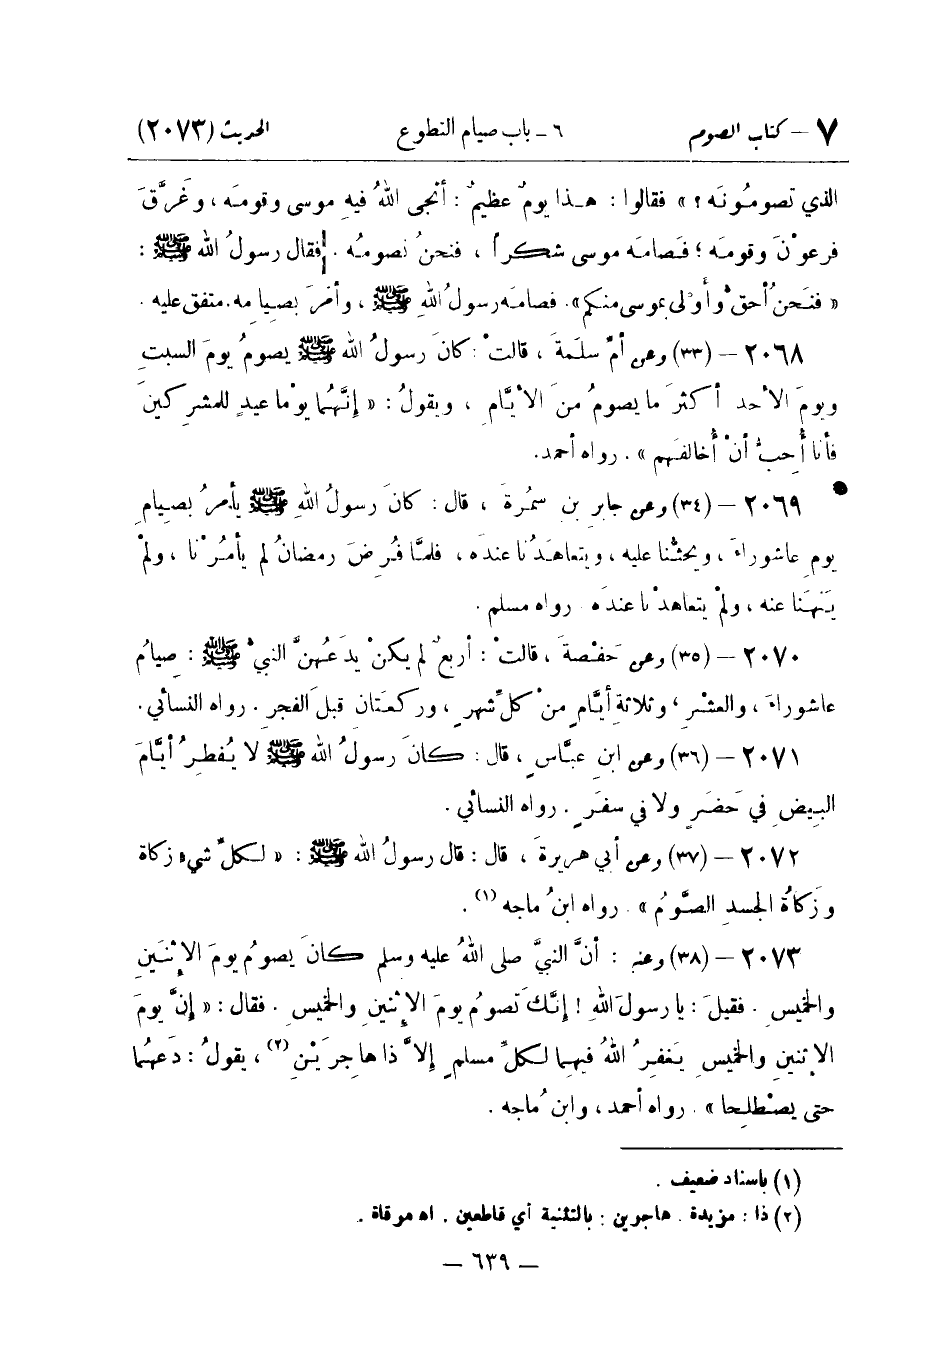 ٧ – كتاب الصوم ٦ – باب صيام التطوع الحديث (٢٠٧٣)
الذي تصومُونَه ؟ » فقالوا : هـذا يومٌ عظيمٌ : أَنْجى اللهُ فيهِ موسى وقومَه ، وغَرَّقَ
فرعوْنَ وقومَه ؛ فصامَه موسى شكراً ، فنحنُ نصومُه . فقال رسولُ الله ﷺ :
« فنحنُ أحقُّ وأَوْلى بموسى منكم ». فصامَه رسولُ اللهِ ﷺ ، وأَمَرَ بصيامِه. متفق عليه .
٢٠٦٨ – (٣٣) وعن أمِّ سلَمةَ ، قالتْ : كانَ رسولُ الله ﷺ يصومُ يومَ السبتِ
ويومَ الأحدِ أكثرَ ما يصومُ منَ الأيَّامِ ، ويقولُ : « إنَّهُما يوْما عيدٍ للمشركينَ
فأنا أُحِبُّ أنْ أُخالفَهم » . رواه أحمد.
٢٠٦٩ – (٣٤) وعن جابرِ بنِ سمُرةَ ، قال : كانَ رسولُ اللهِ ﷺ يأمرُ بصيامِ
يومِ عاشوراءَ ، ويحثُّنا عليه ، ويتعاهدُنا عندَه ، فلمَّا فُرِضَ رمضانُ لم يأمُرْنا ، ولمْ
يَنْهَنا عنه ، ولمْ يتعاهدْنا عندَه . رواه مسلم .
٢٠٧٠ – (٣٥) وعن حَفْصةَ ، قالتْ : أربعٌ لم يكنْ يدَعُهنَّ النبيُّ ﷺ : صيامُ
عاشوراءَ ، والعشْرِ ، وثلاثةِ أيَّامٍ منْ كلِّ شهرٍ ، وركعتان قبلَ الفجرِ . رواه النسائي.
٢٠٧١ – (٣٦) وعن ابنِ عبَّاسٍ ، قال : كانَ رسولُ الله ﷺ لا يُفطرُ أيَّامَ
البِيضِ في حَضَرٍ ولا في سفَرٍ . رواه النسائي .
٢٠٧٢ – (٣٧) وعن أبي هريرةَ ، قال : قال رسولُ الله ﷺ : « لكلِّ شيءٍ زكاةٌ
وزَكاةُ الجسدِ الصَّوْمُ » . رواه ابنُ ماجه (١) .
٢٠٧٣ – (٣٨) وعنه : أنَّ النبيَّ صلى اللهُ عليه وسلم كانَ يصومُ يومَ الإثنَينِ
والخميسِ . فقيلَ : يا رسولَ اللهِ ! إنَّكَ تصومُ يومَ الإثنينِ والخميسِ . فقال : « إنَّ يومَ
الاثنينِ والخميسِ يَغفرُ اللهُ فيهِما لكلِّ مسلمٍ إلاَّ ذا هاجرَيْنِ (٢) ، يقولُ : دَعهُما
حتى يصْطلِحا » . رواه أحمد ، وابنُ ماجه .
(١) بإسناد ضعيف .
(٢) ذا : مزيدة . هاجرين : بالتثنية أي قاطعين . اه مرقاة .
– ٦٣٩ –